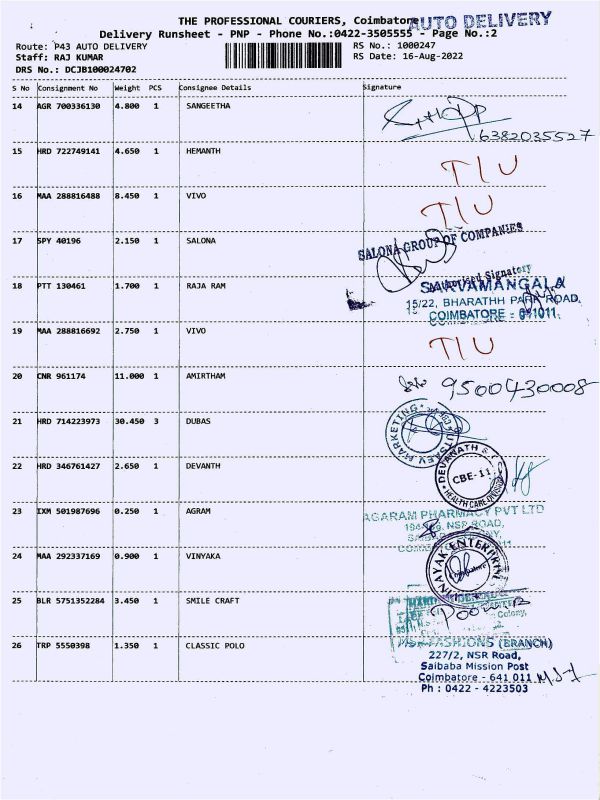 THE PROFESSIONAL COURIERS, Coimbatore
AUTO DELIVERY
Delivery Runsheet - PNP - Phone No.:0422-3505555 - Page No.:2
Route: P43 AUTO DELIVERY
RS No.: 1000247
Staff: RAJ KUMAR
RS Date: 16-Aug-2022
DRS No.: DCJB100024702
S No Consignment No Weight PCS Consignee Details Signature
14 AGR 700336130 4.800 1 SANGEETHA
6382035527
15 HRD 722749141 4.650 1 HEMANTH T/U
16 MAA 288816488 8.450 1 VIVO T/U
17 SPY 40196 2.150 1 SALONA
SALONA GROUP OF COMPANIES
Authorised Signatory
18 PTT 130461 1.700 1 RAJA RAM
SARVAMANGALA
15/22, BHARATHH PARK ROAD,
COIMBATORE - 641011.
19 MAA 288816692 2.750 1 VIVO T/U
20 CNR 961174 11.000 1 AMIRTHAM 9500430008
21 HRD 714223973 30.450 3 DUBAS
MARKETING
22 HRD 346761427 2.650 1 DEVANTH
DEVANATH &
CBE-11
HEALTH CARE DIVISION
23 IXM 501987696 0.250 1 AGRAM
AGARAM PHARMACY PVT LTD
NSR ROAD,
24 MAA 292337169 0.900 1 VINYAKA
ENTERPRI
Coimbatore
25 BLR 5751352284 3.450 1 SMILE CRAFT
Colony,
26 TRP 5550398 1.350 1 CLASSIC POLO
FASHIONS (BRANCH)
227/2, NSR Road,
Saibaba Mission Post
Coimbatore - 641 011
Ph : 0422 - 4223503